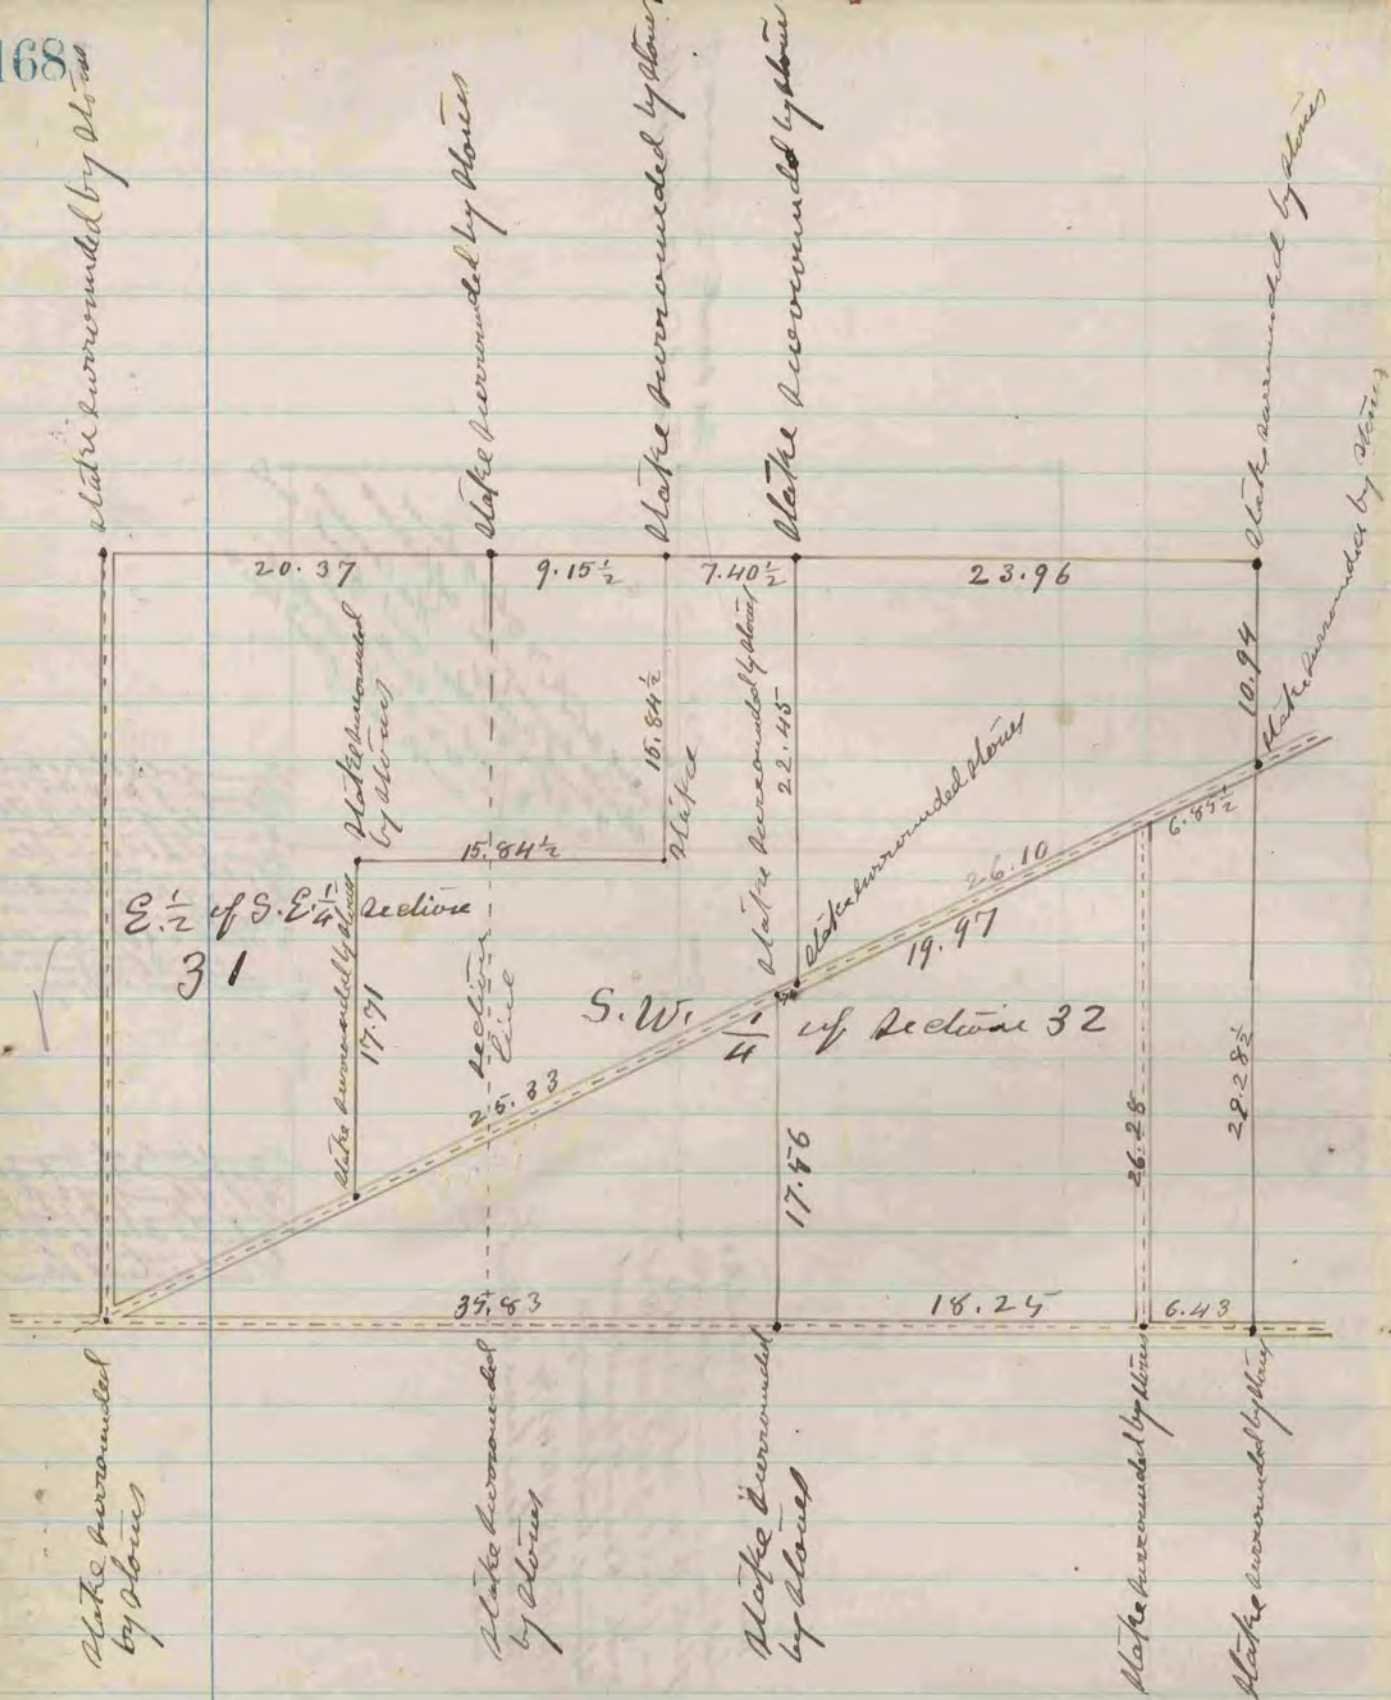 168
Stake surrounded by stones
Stake surrounded by stones
Stake surrounded by stones
Stake surrounded by stones
Stake surrounded by stones
Stake surrounded by stones
20.37
9.15 1/2
7.40 1/2
23.96
Stake surrounded
by stones
15.84 1/2
Stake
Stake surrounded by stones
22.45
10.94
Stake surrounded stones
15.84 1/2
26.10
6.85 1/2
19.97
E. 1/2 of S.E. 1/4 Section
31
Stake surrounded by stones
17.71
Section
line
S.W. 1/4 of Section 32
25.33
17.56
26.28
28.28 1/2
35.83
18.25
6.43
Stake surrounded
by stones
Stake surrounded
by stones
Stake surrounded
by stones
Stake surrounded by stones
Stake surrounded by stones